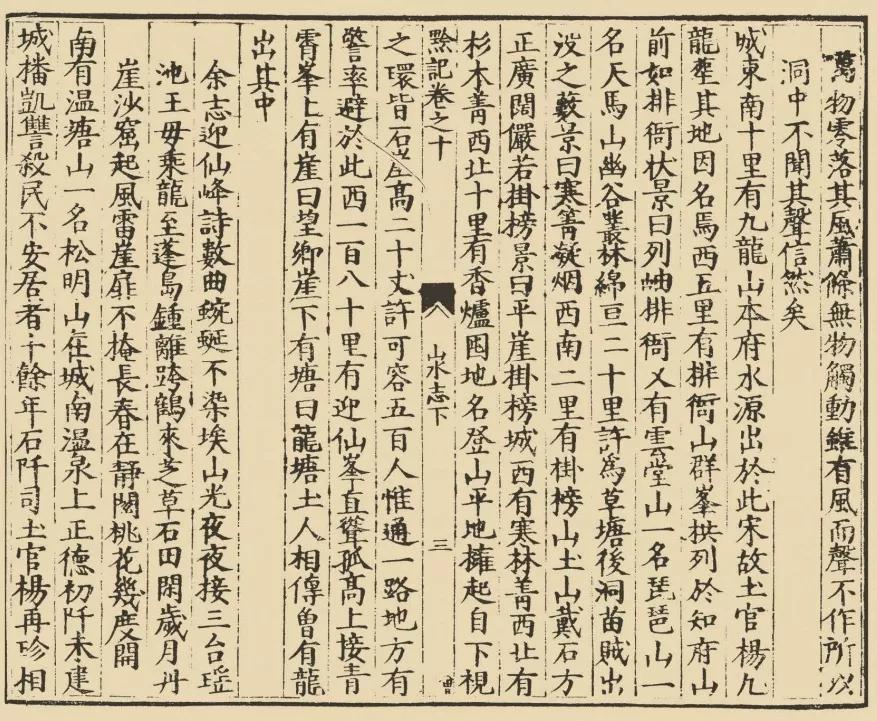 萬物零落其風蕭條無物觸動雖有風而聲不作所以
洞中不聞其聲信然矣
城東南十里有九龍山本府水源出於此宋故土官楊九
龍塟其地因名焉西五里有排衙山群峯拱列於知府山
前如排衙状景曰列岫排衙又有雲堂山一名琵琶山一
名天馬山幽谷叢林綿亘二十里許為草塘後洞苗賊出
没之藪景曰寒箐凝烟西南二里有掛榜山土山戴石方
正廣闊儼若掛榜景曰平崖掛榜城西有寒林菁西北有
杉木菁西北十里有香爐囤地名登山平地擁起自下視
黔記卷之十
山水志下
三
之環皆石崖高二十丈許可容五百人惟通一路地方有
警率避於此西一百八十里有迎仙峯直聳孤高上接青
霄峯上有崖曰望鄉崖下有塘曰龍塘土人相傳曾有龍
出其中
余志迎仙峰詩數曲蜿蜒不染埃山光夜夜接三台瑶
池王毋乘龍至蓬島鍾離跨鶴來芝草石田閑歲月丹
崖沙窟起風雷崖扉不掩長春在靜閣桃花幾度開
南有温塘山一名松明山在城南温泉上正德初阡未建
城播凱讐殺民不安居者十餘年石阡司土官楊再珍相